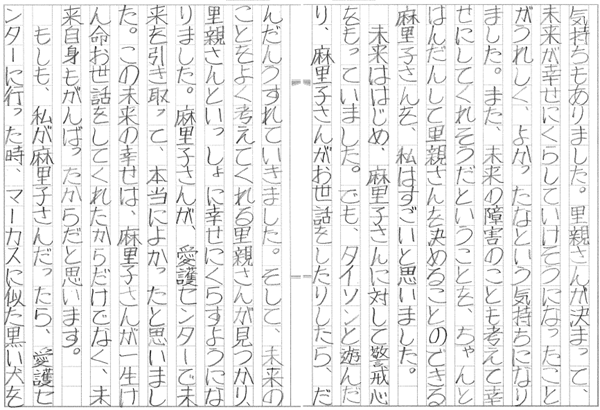 気持ちもありました。里親さんが決まって、
未来が幸せにくらしていけそうになったこと
がうれしく、よかったなという気持ちになり
ました。また、未来の障害のことも考えて幸
せにしてくれそうだということを、ちゃんと
はんだんして里親さんを決めることのできる
麻里子さんを、私はすごいと思いました。
未来ははじめ、麻里子さんに対して警戒心
をもっていました。でも、タイソンと遊んだ
り、麻里子さんがお世話をしたりしたら、だ
んだんうすれていきました。そして、未来の
ことをよく考えてくれる里親さんが見つかり、
里親さんといっしょに幸せにくらすようにな
りました。麻里子さんが、愛護センターで未
来を引き取って、本当によかったと思いまし
た。この未来の幸せは、麻里子さんが一生け
ん命お世話をしてくれたからだけでなく、未
来自身もがんばったからだと思います。
もしも、私が麻里子さんだったら、愛護セ
ンターに行った時、マーカスに似た黒い犬を